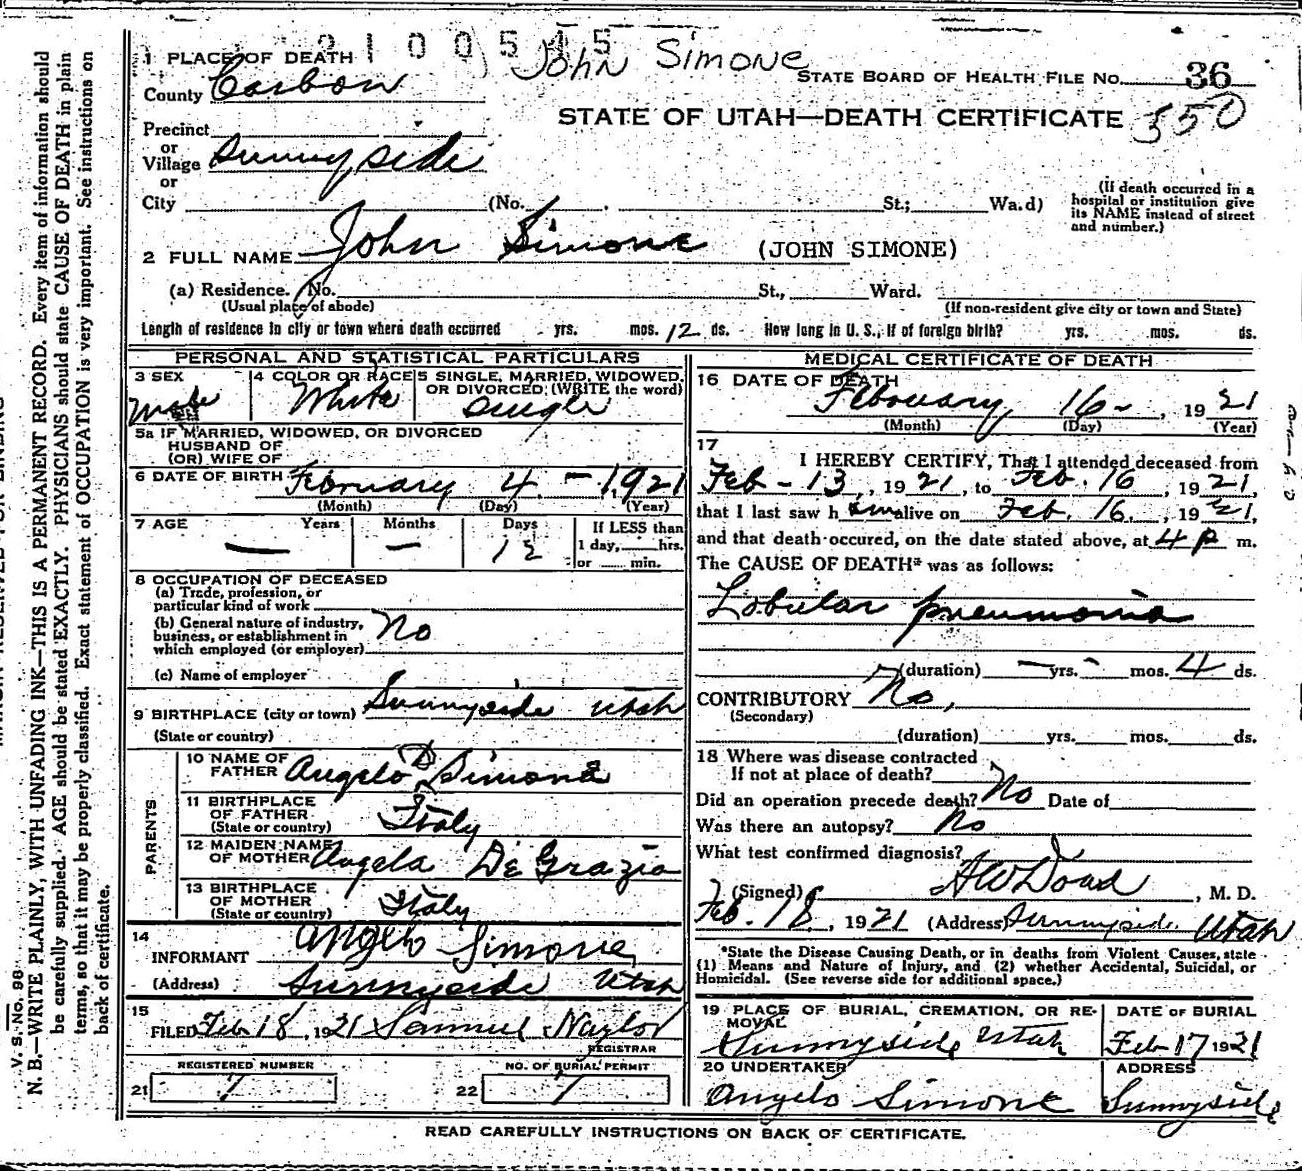 2100515 John Simone
1 PLACE OF DEATH
STATE BOARD OF HEALTH FILE No. 36
County Carbon
550
STATE OF UTAH—DEATH CERTIFICATE
Precinct
or
Village Sunnyside
or
City (No. St.; Wa.d)
(If death occurred in a
hospital or institution give
its NAME instead of street
and number.)
2 FULL NAME John Simone (JOHN SIMONE)
(a) Residence. No. St., Ward.
(Usual place of abode) (If non-resident give city or town and State)
Length of residence in city or town where death occurred yrs. mos. 12 ds. How long in U. S., if of foreign birth? yrs. mos. ds.
PERSONAL AND STATISTICAL PARTICULARS
3 SEX
Male
4 COLOR OR RACE
White
5 SINGLE, MARRIED, WIDOWED,
OR DIVORCED (WRITE the word)
Single
5a IF MARRIED, WIDOWED, OR DIVORCED
HUSBAND OF
(OR) WIFE OF
6 DATE OF BIRTH February 4 - 1921
(Month) (Day) (Year)
7 AGE Years Months Days If LESS than
— — 12 1 day, hrs.
or min.
8 OCCUPATION OF DECEASED
(a) Trade, profession, or
particular kind of work
(b) General nature of industry,
business, or establishment in
which employed (or employer) No
(c) Name of employer
9 BIRTHPLACE (city or town) Sunnyside Utah
(State or country)
PARENTS
10 NAME OF
FATHER Angelo D Simone
11 BIRTHPLACE
OF FATHER
(State or country) Italy
12 MAIDEN NAME
OF MOTHER Angela De Grazio
13 BIRTHPLACE
OF MOTHER
(State or country) Italy
14
INFORMANT Angelo Simone
(Address) Sunnyside Utah
15
FILED Feb 18, 1921 Samuel Naylor
REGISTRAR
REGISTERED NUMBER
21 7
NO. OF BURIAL PERMIT
22 7
MEDICAL CERTIFICATE OF DEATH
16 DATE OF DEATH
February 16-, 1921
(Month) (Day) (Year)
17
I HEREBY CERTIFY, That I attended deceased from
Feb - 13, 1921, to Feb. 16, 1921,
that I last saw him alive on Feb. 16., 1921,
and that death occured, on the date stated above, at 4 p m.
The CAUSE OF DEATH* was as follows:
Lobular pneumonia
(duration) — yrs. - mos. 4 ds.
CONTRIBUTORY No,
(Secondary)
(duration) yrs. mos. ds.
18 Where was disease contracted
If not at place of death?
Did an operation precede death? No Date of
Was there an autopsy? No
What test confirmed diagnosis?
(Signed) A W Dowd, M. D.
Feb. 18, 1921 (Address) Sunnyside. Utah
*State the Disease Causing Death, or in deaths from Violent Causes, state
(1) Means and Nature of Injury, and (2) whether Accidental, Suicidal, or
Homicidal. (See reverse side for additional space.)
19 PLACE OF BURIAL, CREMATION, OR RE-
MOVAL
Sunnyside Utah
DATE OF BURIAL
Feb 17 1921
20 UNDERTAKER
Angelo Simone
ADDRESS
Sunnyside
READ CAREFULLY INSTRUCTIONS ON BACK OF CERTIFICATE.
V. S. No. 98
N. B.—WRITE PLAINLY, WITH UNFADING INK—THIS IS A PERMANENT RECORD. Every item of information should
be carefully supplied. AGE should be stated EXACTLY. PHYSICIANS should state CAUSE OF DEATH in plain
terms, so that it may be properly classified. Exact statement of OCCUPATION is very important. See instructions on
back of certificate.